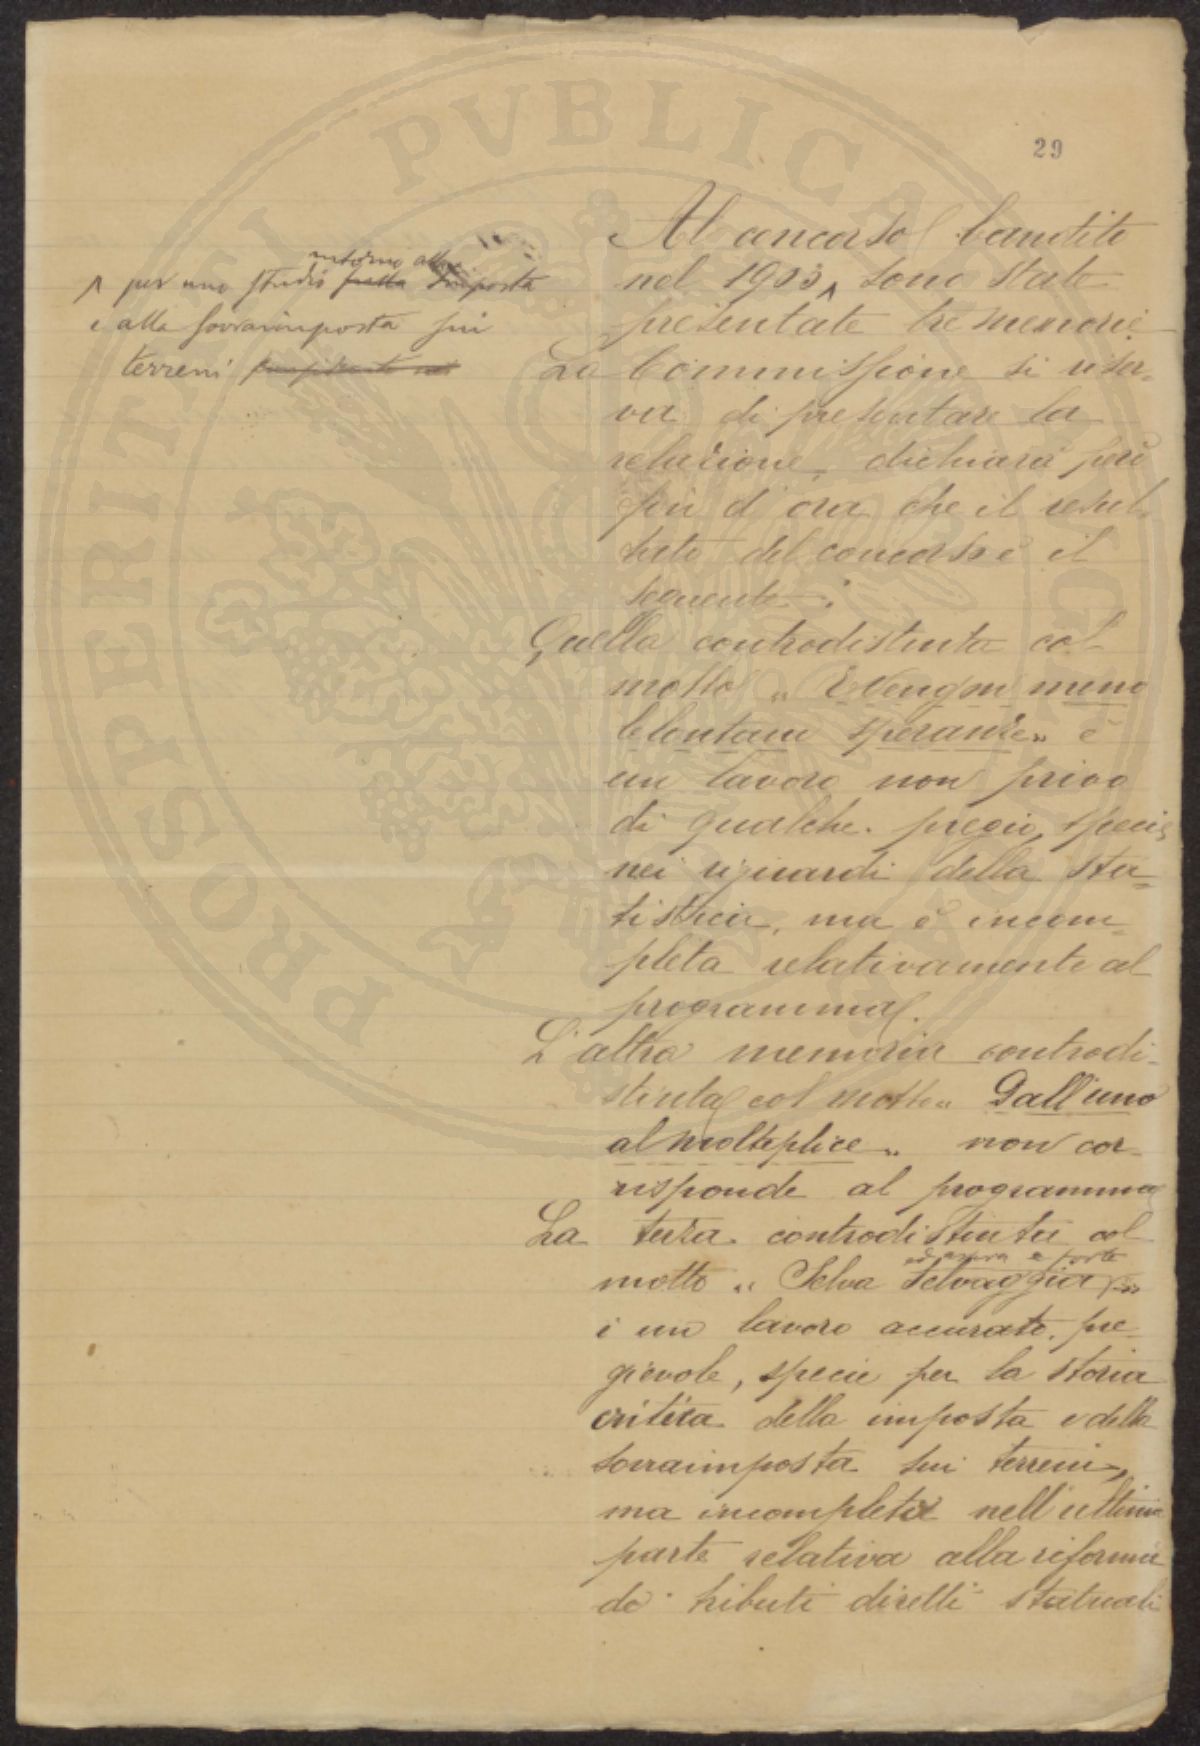 PROSPERITAS PVBLICAE AVGVRIVM
29
Al concorso bandito
nel 1903 ^ sono state
presentate tre memorie
^ per uno studio intorno alla imposta
e alla sovraimposta sui
terreni
La Commissione si riser-
va di presentare la
relazione, dichiara però
fin d'ora che il resul-
tato del concorso è il
seguente:
Quella controdistinta col
motto "
lontani speranze" è
un lavoro non privo
di qualche pregio, specie
nei riguardi della sta-
tistica, ma è incom-
pleta relativamente al
programma.
L'altra memoria controdi-
stinta col motto "Dall'uno
al molteplice" non cor-
risponde al programma
La terza controdistinta col
motto "Selva selvaggia ed aspra e forte"
è un lavoro accurato, pre-
gievole, specie per la storia
critica della imposta e della
sovraimposta sui terreni,
ma incompleta nell'ultima
parte relativa alla riforma
de' tributi diretti statuali